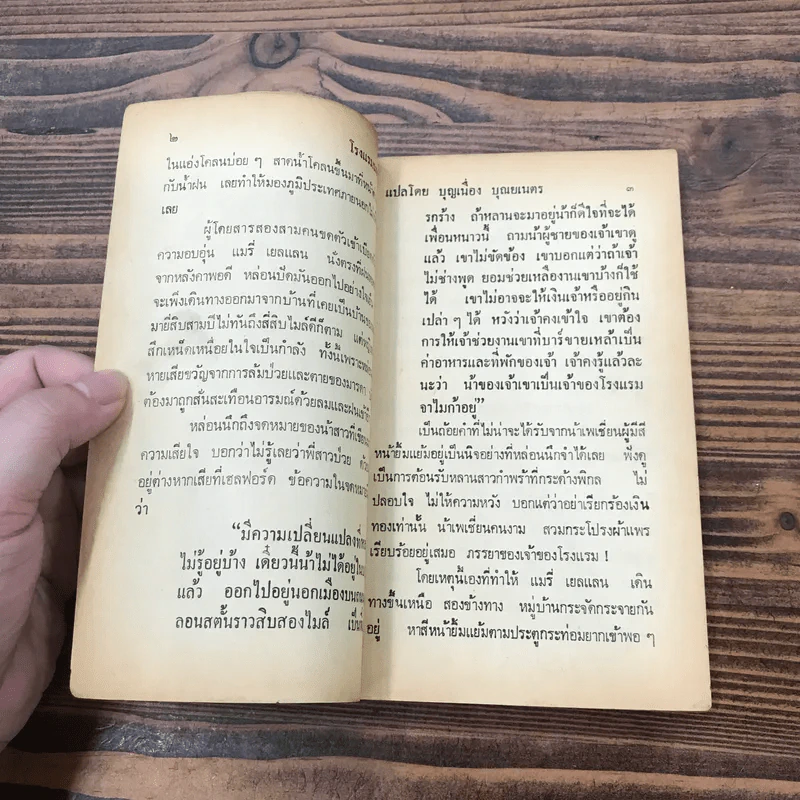 ๒
โรงแรม
ในแอ่งโคลนบ่อย ๆ สาดน้ำโคลนขึ้นมาที่
กับน้ำฝน เลยทำให้มองภูมิประเทศภายนอก
เลย
ผู้โดยสารสองสามคนขดตัวเข้าเบียด
ความอบอุ่น แมรี่ เยลแลน นั่งตรงที่
จากหลังคาพอดี หล่อนปัดมันออกไปอย่าง
จะเพิ่งเดินทางออกมาจากบ้านที่เคยเป็นบ้าน
มายี่สิบสามปีไม่ทันถึงสี่สิบไมล์ดีก็ตาม แต่
สึกเหน็ดเหนื่อยในใจเป็นกำลัง ทั้งนี้เพราะ
หายเสียขวัญจากการล้มป่วยและตายของมารดา
ต้องมาถูกสั่นสะเทือนอารมณ์ด้วยลมและฝน
หล่อนนึกถึงจดหมายของน้าสาวที่เขียน
ความเสียใจ บอกว่าไม่รู้เลยว่าพี่สาวป่วย
อยู่ต่างหากเสียที่เฮลฟอร์ด ข้อความในจดหมาย
ว่า
“มีความเปลี่ยนแปลงที่
ไม่รู้อยู่บ้าง เดี๋ยวนี้น้าไม่ได้อยู่ใน
แล้ว ออกไปอยู่นอกเมืองบน
ลอนสตั้นราวสิบสองไมล์ เป็น
แปลโดย บุญเนื่อง บุณยเนตร ๓
รกร้าง ถ้าหลานจะมาอยู่น้าก็ดีใจที่จะได้
เพื่อนหนาวนี้ ถามน้าผู้ชายของเจ้าเขาดู
แล้ว เขาไม่ขัดข้อง เขาบอกแต่ว่าถ้าเจ้า
ไม่ช่างพูด ยอมช่วยเหลืองานเขาบ้างก็ใช้
ได้ เขาไม่อาจจะให้เงินเจ้าหรืออยู่กิน
เปล่า ๆ ได้ หวังว่าเจ้าคงเข้าใจ เขาต้อง
การให้เจ้าช่วยงานเขาที่บาร์ขายเหล้าเป็น
ค่าอาหารและที่พักของเจ้า เจ้าคงรู้แล้วละ
นะว่า น้าของเจ้าเขาเป็นเจ้าของโรงแรม
จาไมก้าอยู่”
เป็นถ้อยคำที่ไม่น่าจะได้รับจากน้าเพเชี่ยนผู้มีสี
หน้ายิ้มแย้มอยู่เป็นนิจอย่างที่หล่อนนึกจำได้เลย ฟังดู
เป็นการต้อนรับหลานสาวกำพร้าที่กระด้างพิกล ไม่
ปลอบใจ ไม่ให้ความหวัง บอกแต่ว่าอย่าเรียกร้องเงิน
ทองเท่านั้น น้าเพเชี่ยนคนงาม สวมกระโปรงผ้าแพร
เรียบร้อยอยู่เสมอ ภรรยาของเจ้าของโรงแรม !
โดยเหตุนี้เองที่ทำให้ แมรี่ เยลแลน เดิน
ทางขึ้นเหนือ สองข้างทาง หมู่บ้านกระจัดกระจายกัน
อยู่ หาสีหน้ายิ้มแย้มตามประตูกระท่อมยากเข้าพอ ๆ